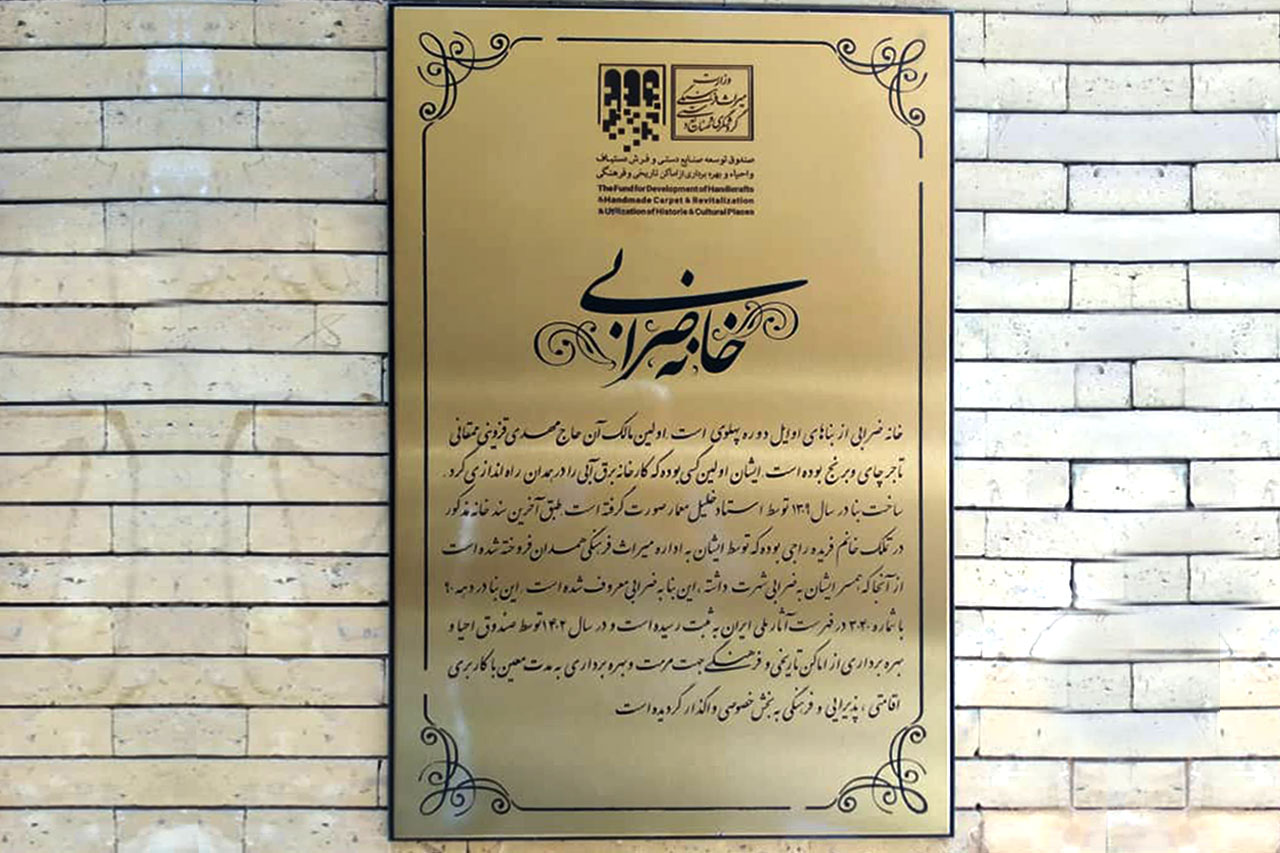 وزارت
میراث فرهنگی
گردشگری و صنایع دستی
صندوق توسعه صنایع دستی و فرش دستباف
و احیاء و بهره برداری از اماکن تاریخی و فرهنگی
The Fund for Development of Handicrafts
& Handmade Carpet & Revitalization
& Utilization of Historic & Cultural Places
خانه ضرابی
خانه ضرابی از بناهای اوایل دوره پهلوی است. اولین مالک آن حاج محمدی قزوینی ممقانی
تاجر چای و برنج بوده است. ایشان اولین کسی بوده که کارخانه برق آبی را در همدان راه اندازی کرد.
ساخت بنا در سال ۱۳۰۹ توسط استاد خلیل معمار صورت گرفته است. طبق آخرین سند خانه مذکور
در تملک خانم فریده راجی بوده که توسط ایشان به اداره میراث فرهنگی همدان فروخته شده است
از آنجا که همسر ایشان به ضرابی شهرت داشته، این بنا به ضرابی معروف شده است. این بنا در دهه ۹۰
با شماره ۳۰۴۰ در فهرست آثار ملی ایران به ثبت رسیده است و در سال ۱۴۰۲ توسط صندوق احیا و
بهره برداری از اماکن تاریخی و فرهنگی جهت مرمت و بهره برداری به مدت معین با کاربری
اقامتی، پذیرایی و فرهنگی به بخش خصوصی واگذار گردیده است